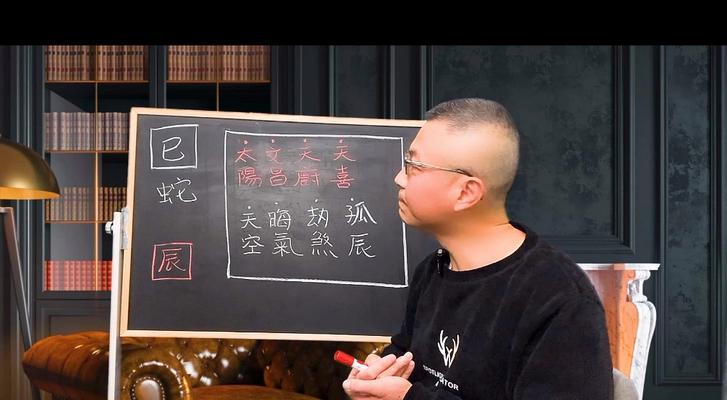 巳
蛇
辰
太陽
文昌
天廚
天喜
天空
晦氣
劫煞
孤辰